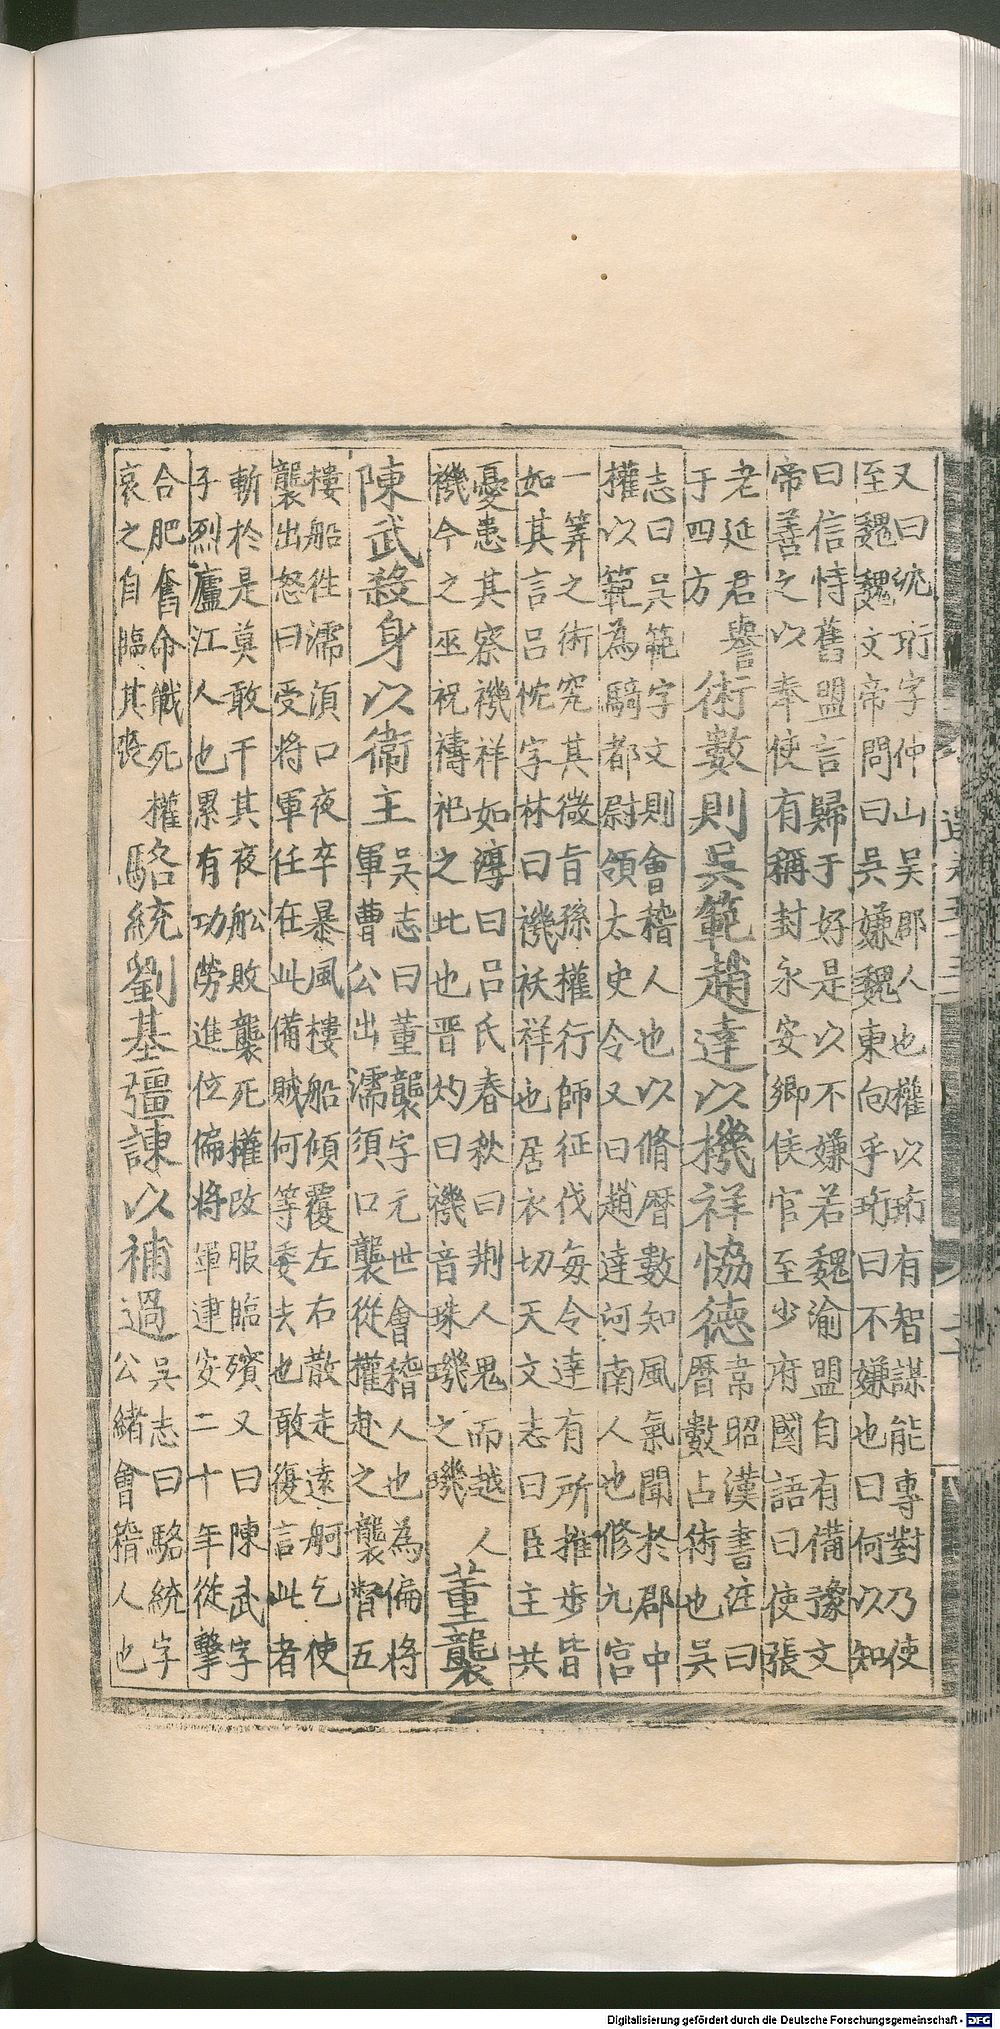 又曰統珩字仲山吴郡人也權以珩有智謀能專對乃使
至魏魏文帝問曰吴嫌魏東向乎珩曰不嫌也曰何以知
曰信恃舊盟言歸于好是以不嫌若魏渝盟自有備豫文
帝善之以奉使有稱封永安鄉侯官至少府國語曰使張
老延君譽
于四方
術數則吴範趙達以機祥恊德
韋昭漢書注曰
曆數占術也吴
志曰吴範字文則會稽人也以脩曆數知風氣聞於郡中
權以範為騎都尉領太史令又曰趙達河南人也修九宫
一筭之術究其微旨孫權行師征伐每令達有所推步皆
如其言吕忱字林曰禨祅祥也居衣切天文志曰臣主共
憂患其察禨祥如淳曰吕氏春秋曰荆人鬼而越人
禨今之巫祝禱祀之比也晋灼曰禨音珠璣之璣
董襲
陳武殺身以衛主
吴志曰董襲字元世會稽人也為偏將
軍曹公出濡須口襲從權赴之襲督五
樓船徃濡湏口夜卒暴風樓船傾覆左右散走遠舸乞使
襲出怒曰受將軍任在此備賊何等委去也敢復言此者
斬於是莫敢干其夜舩敗襲死權改服臨殯又曰陳武字
子烈廬江人也累有功勞進位偏將軍建安二十年從擊
合肥奮命戰死權
哀之自臨其喪
駱統劉基彊諫以補過
吴志曰駱統字
公緒會稽人也
Digitalisierung gefördert durch die Deutsche Forschungsgemeinschaft - DFG